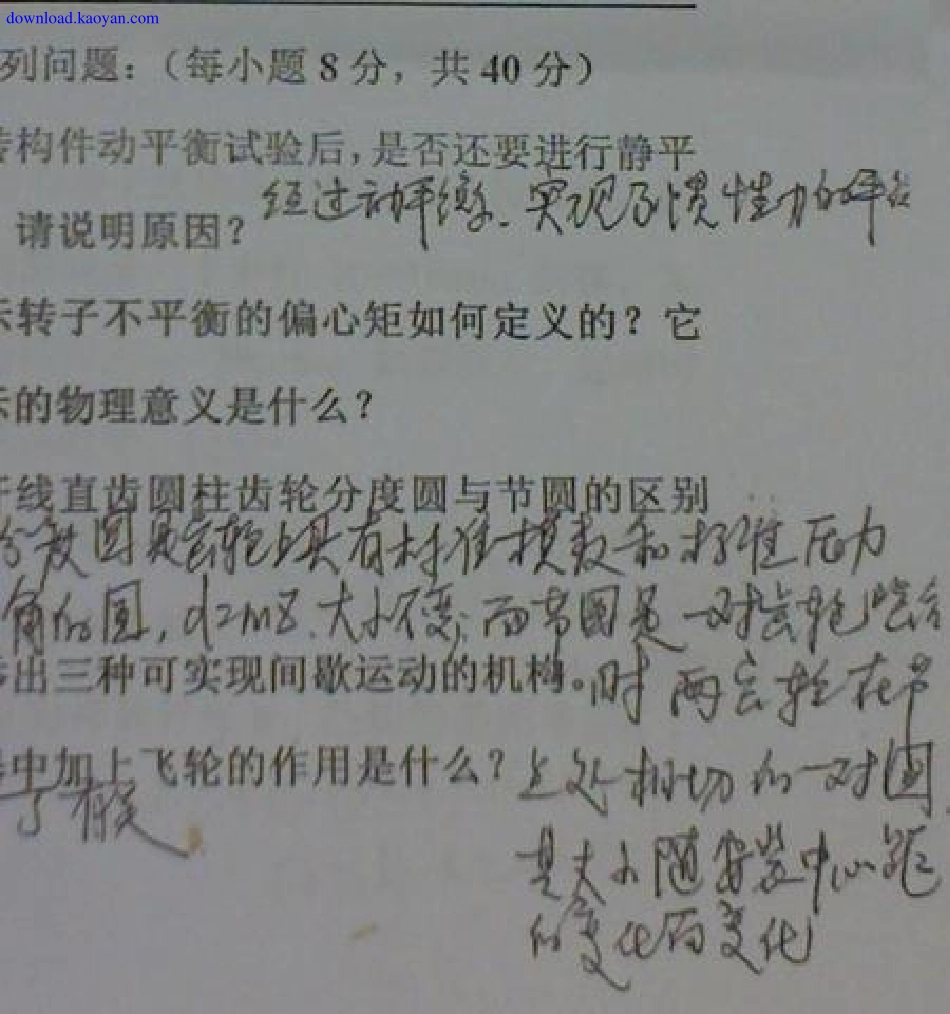 download.kaoyan.com
列问题：（每小题 8 分，共 40 分）
构件动平衡试验后，是否还要进行静平
经过动平衡、实现了惯性力的平
请说明原因？
示转子不平衡的偏心矩如何定义的？它
示的物理意义是什么？
线直齿圆柱齿轮分度圆与节圆的区别
分度圆是齿轮上具有标准模数和标准压力
角的圆，d=mz、大小不变；而节圆是一对齿轮啮合
出三种可实现间歇运动的机构。时 两齿轮在节
中加上飞轮的作用是什么？上处相切的一对圆
了
其大小随安装中心距
的变化而变化